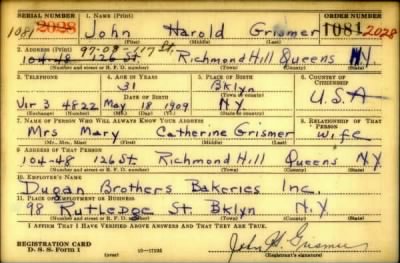 SERIAL NUMBER 1. NAME (Print) ORDER NUMBER
1081 2028 John Harold Grismer 1081 2028
(First) (Middle) (Last)
2. ADDRESS (Print) 97-09-117 St.
104-48 126 St. Richmond Hill Queens N.Y.
(Number and street or R. F. D. number) (Town) (County) (State)
3. TELEPHONE 4. AGE IN YEARS 5. PLACE OF BIRTH 6. COUNTRY OF CITIZENSHIP
31 Bklyn
DATE OF BIRTH (Town or county)
Vir 3 4822 May 18 1909 N.Y. U.S.A
(Exchange) (Number) (Mo.) (Day) (Yr.) (State or country)
7. NAME OF PERSON WHO WILL ALWAYS KNOW YOUR ADDRESS 8. RELATIONSHIP OF THAT PERSON
Mrs Mary Catherine Grismer wife
(Mr., Mrs., Miss) (First) (Middle) (Last)
9. ADDRESS OF THAT PERSON
104-48 126 St. Richmond Hill Queens N.Y
(Number and street or R. F. D. number) (Town) (County) (State)
10. EMPLOYER'S NAME
Dugan Brothers Bakeries Inc.
11. PLACE OF EMPLOYMENT OR BUSINESS
98 Rutledge St. Bklyn N.Y
(Number and street or R. F. D. number) (Town) (County) (State)
I AFFIRM THAT I HAVE VERIFIED ABOVE ANSWERS AND THAT THEY ARE TRUE.
REGISTRATION CARD
D. S. S. Form 1 John H. Grismer
(Registrant's signature)